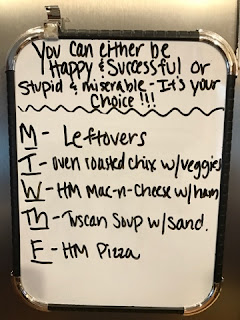 You can either be
Happy & Successful or
Stupid & miserable - It's your
Choice!!!
M - Leftovers
T - oven roasted chix w/veggies
W - HM Mac-n-Cheese w/ham
Th - Tuscan Soup w/Sand.
F - HM Pizza